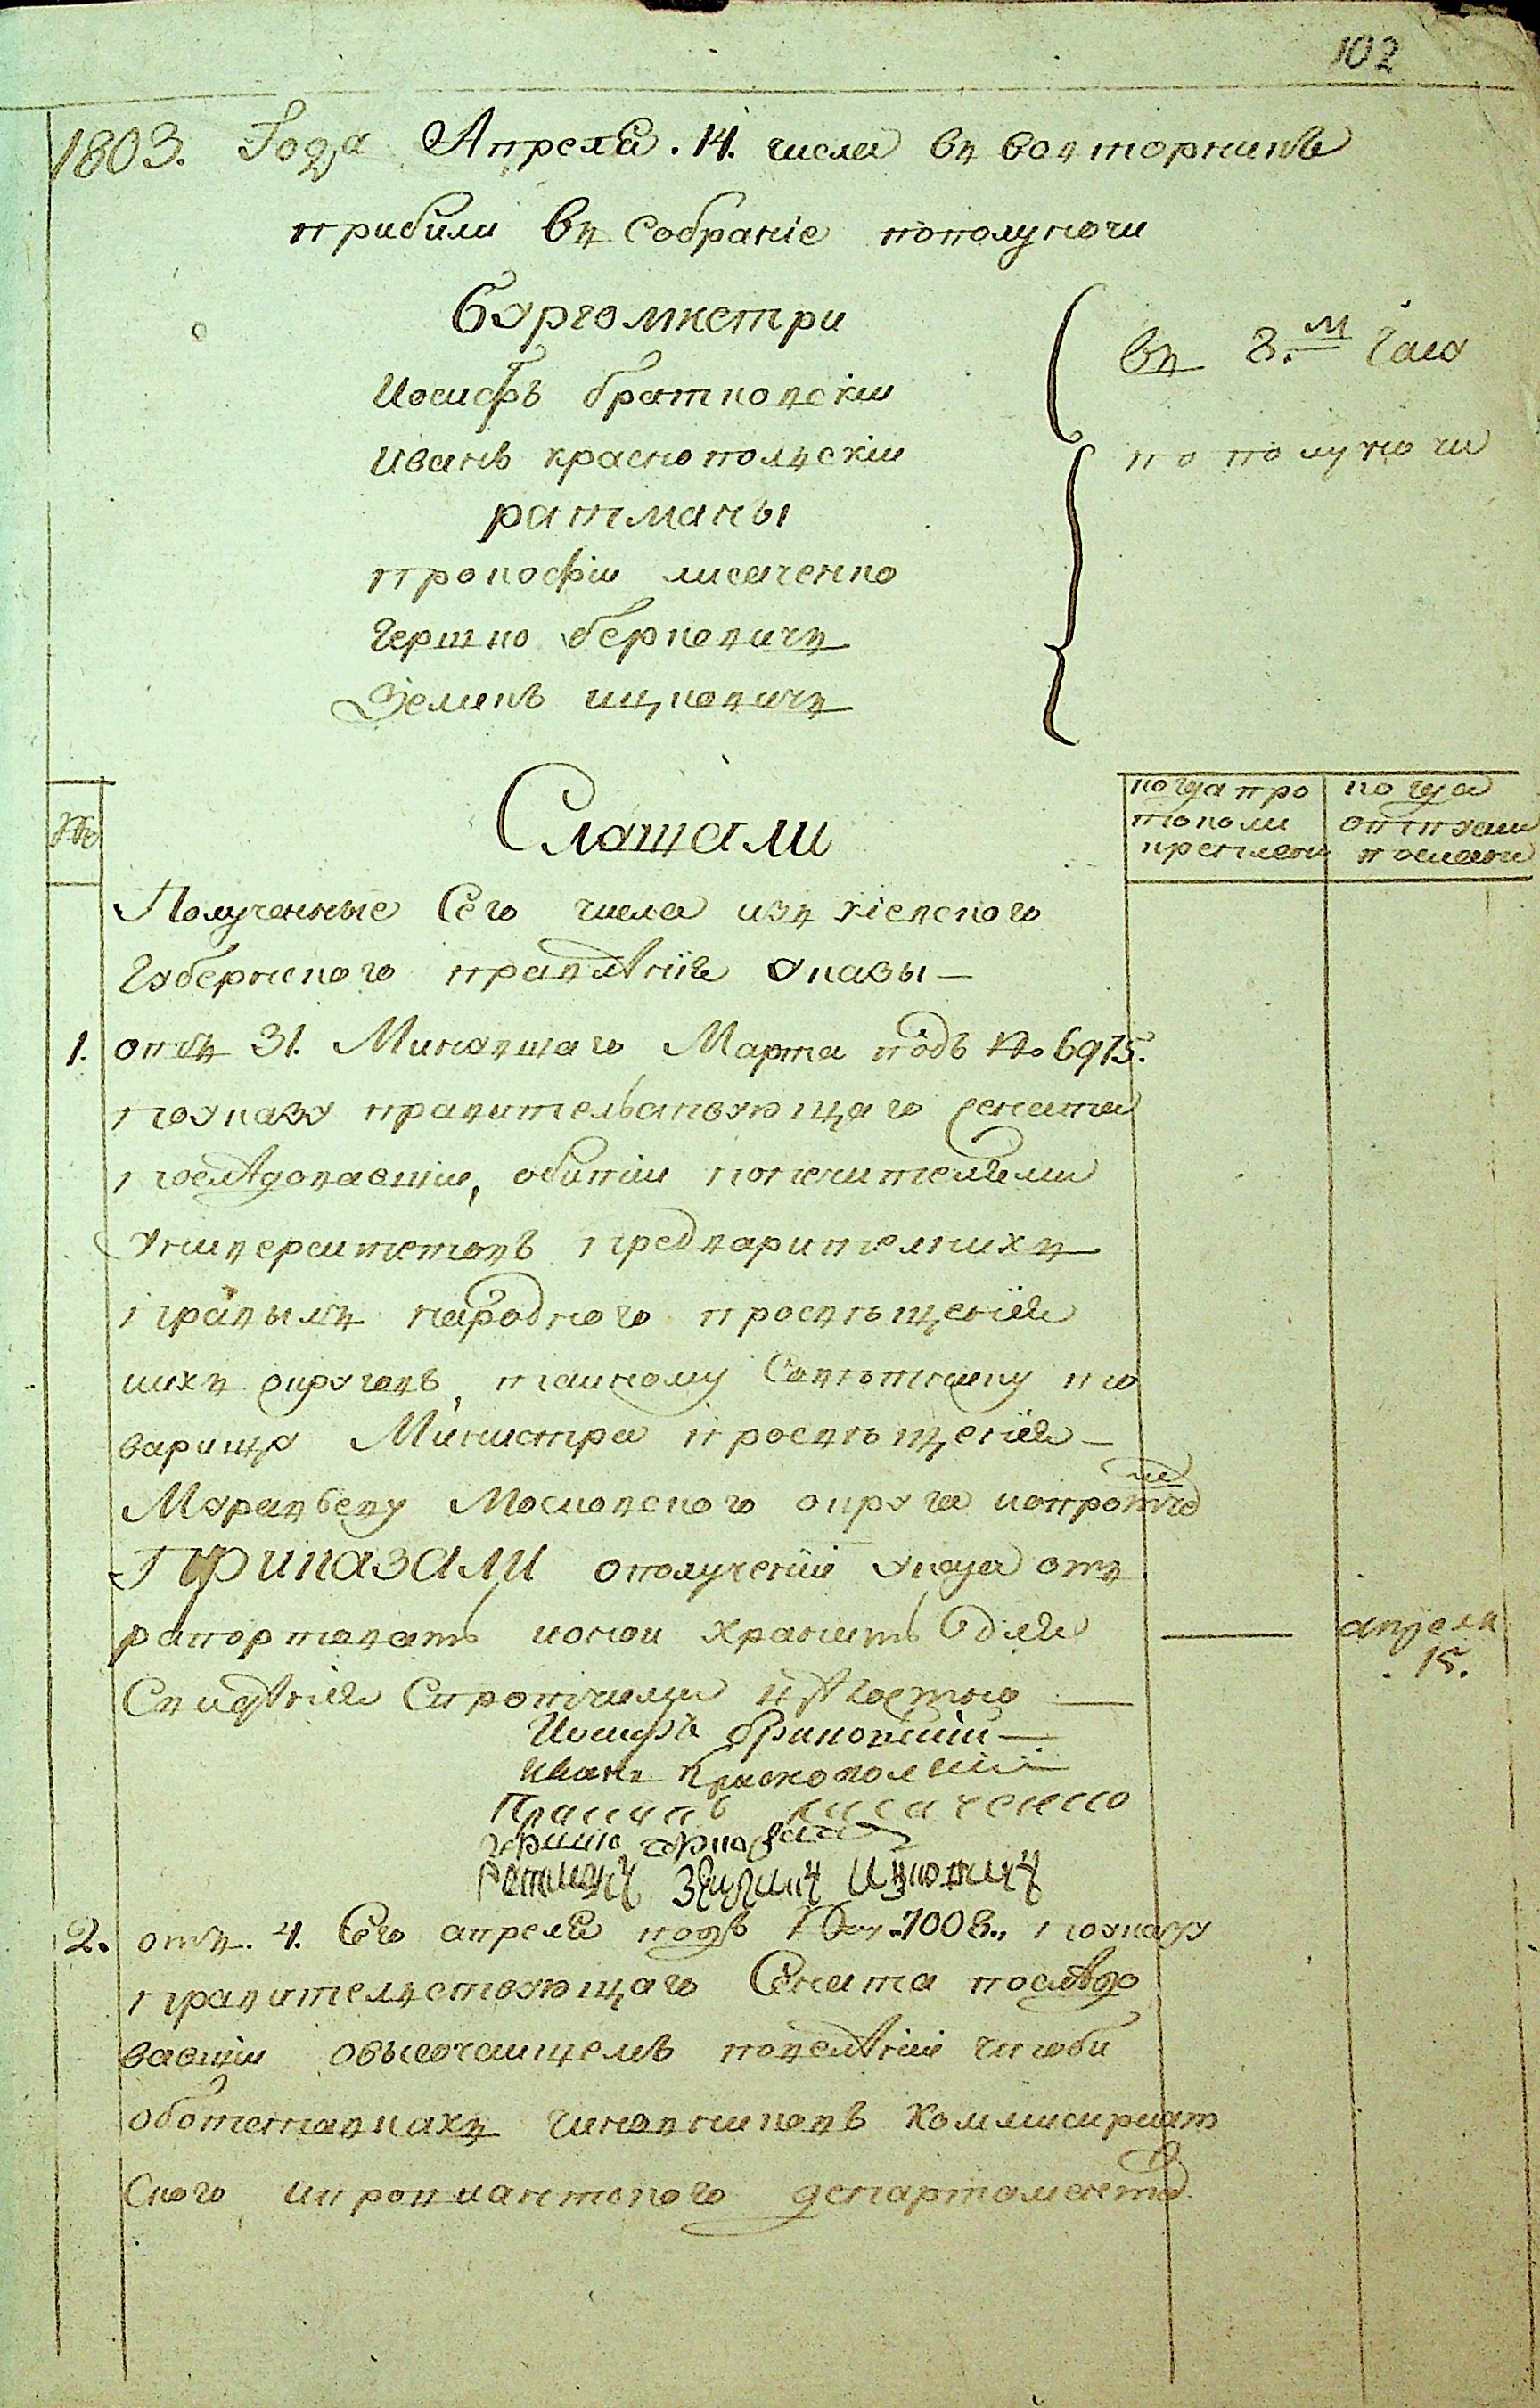 102
1803. Года Апреля. 14. числа въ вовторникъ
прибили въ собраніе пополуночи
Бургомистри
Иосифъ братковскіи
Иванъ краснополскіи
ратманы
прокофіи лисаченко
Гершко берковичъ
Зеликъ ицковичъ
въ 8.м часу
по полуночи
№
Слушали
когда про
токоли
крепленн
когда
отпуски
посланн
Полученные Сего числа изъ кіевского
Губернского правлѣнія указы —
1. отъ 31. Минувшаго Марта подъ № 6975.
по указу правительствующаго сената
послѣдовавшіи, обитіи попечителями
университетовъ предварителнихъ
правылъ народного просвѣщенія
ихъ округовъ, таиному Совѣтнику то
варищу Министра просвѣщенія —
Муравьеву Московского округа и протчее
Приказали о полученіи указа от
рапортовать и онои хранить для
Свидѣнія С протчими
апреля
15.
Иосифъ братковскіи —
Иванъ Краснополскіи
лисаченко
Ратманъ Зеликъ Ицковичъ
2. отъ. 4. Сего апреля подъ №м. 7008., по указу
правителствующаго Сената послѣдо
вавшіи о высочаишемъ повелѣніи чтоби
оботставкахъ чиновниковъ Коммисириат
Ского, и провиантского департамента